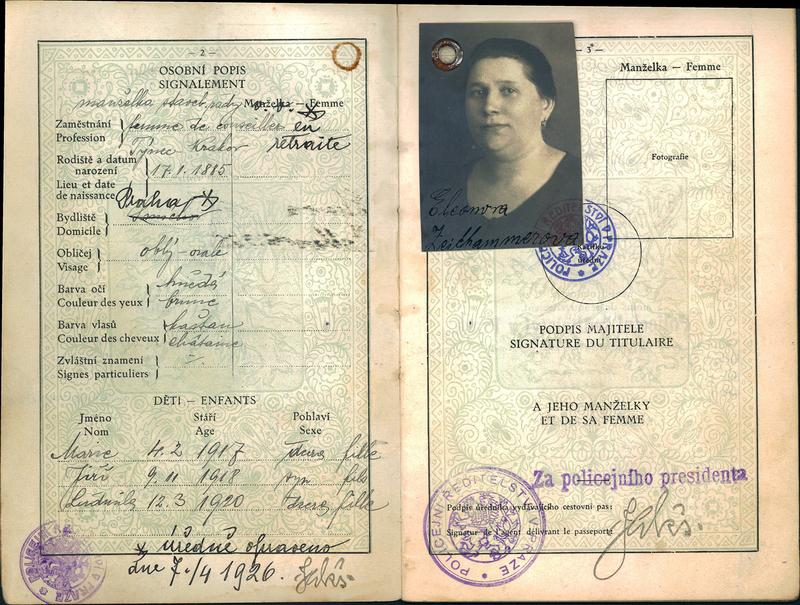 — 2 —
OSOBNÍ POPIS
SIGNALEMENT
manželka staveb. rady Manželka — Femme
Zaměstnání
Profession
femme de conseiller en
retraite
Týnec Krakov
Rodiště a datum
narození
17.1. 1885
Lieu et date
de naissance
Praha
Bydliště
Domicile
Obličej
Visage
oblý - ovale
Barva očí
Couleur des yeux
hnědé
brune
Barva vlasů
Couleur des cheveux
kaštan
chataine
Zvláštní znamení
Signes particuliers
DĚTI — ENFANTS
Jméno Stáří Pohlaví
Nom Age Sexe
Marie 4.2 1917 dcera fille
Jiří 9.11 1918 syn fils
Ludmila 12.3 1920 dcera fille
úředně opraveno
dne 7./4 1926.
— 3 —
Manželka — Femme
Fotografie
Eleonora
Zeichammerova
POLICEJNÍ ŘEDITELSTVÍ V PRAZE
PODPIS MAJITELE
SIGNATURE DU TITULAIRE
A JEHO MANŽELKY
ET DE SA FEMME
Za policejního presidenta
Podpis úředníka vydávajícího cestovní pas:
Signatur de l'agent délivrant le passeport:
POLICEJNÍ ŘEDITELSTVÍ V PRAZE